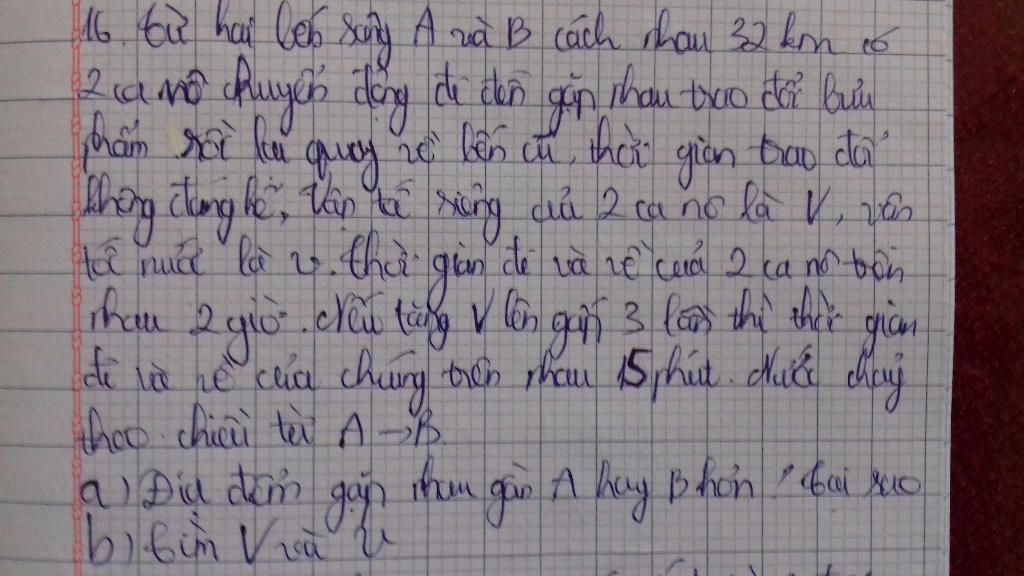 16. Từ hai bến sông A và B cách nhau 32 km có
2 ca nô chuyển động đi đến gặp nhau trao đổi bưu
phẩm rồi lại quay về bến cũ, thời gian trao đổi
không đáng kể, Vận tố riêng của 2 ca nô là V, vân
tố nước là v. Thời gian đi và về của 2 ca nô trôn
nhau 2 giờ. Nếu tăng V lên gấp 3 lần thì thời gian
đi và về của chúng trôn nhau 15 phút. Nước chảy
theo chiều từ A → B
a) Địa điểm gặp nhau gần A hay B hơn ? tại sao
b) Tìm V và v